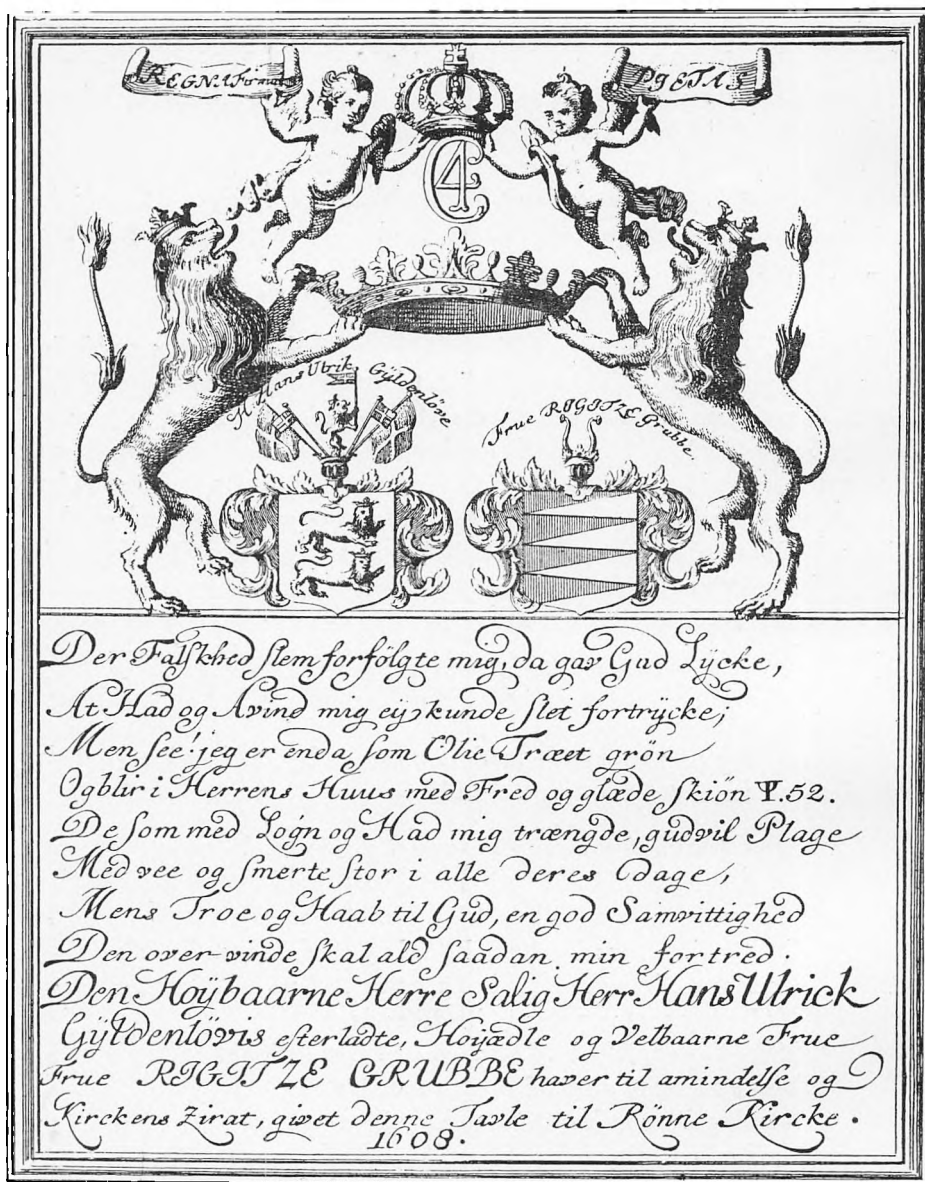 REGNA Firmat
PIETAS
C4
H. Hans Ulrik Gÿldenlöve
Frue RIGITZE Grubbe
Der Falskhed slem forfölgte mig, da gav Gud Lÿcke,
At Had og Avind mig eÿ kunde slet fortrÿcke;
Men see! jeg er enda som Olie Træet grön
Og blir i Herrens Huus med Fred og glæde skiön Ψ.52.
De som med Logn og Had mig trængde, gud vil Plage
Med vee og smerte stor i alle deres dage,
Mens Troe og Haab til Gud, en god Samvittighed
Den over-vinde skal ald saadan min fortred.
Den Hoÿbaarne Herre Salig Herr Hans Ulrick
Gÿldenlövis efterladte, Hoÿædle og Velbaarne Frue
Frue RIGITZE GRUBBE haver til amindelse og
Kirckens Zirat, givet denne Tavle til Rönne Kircke.
1608.